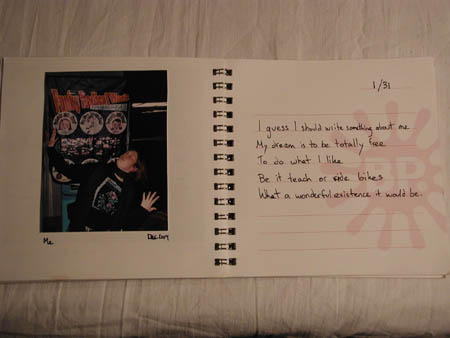 1/31
I guess I should write something about me
My dream is to be totally free
To do what I like
Be it teach or ride bikes
What a wonderful existence it would be.
Me